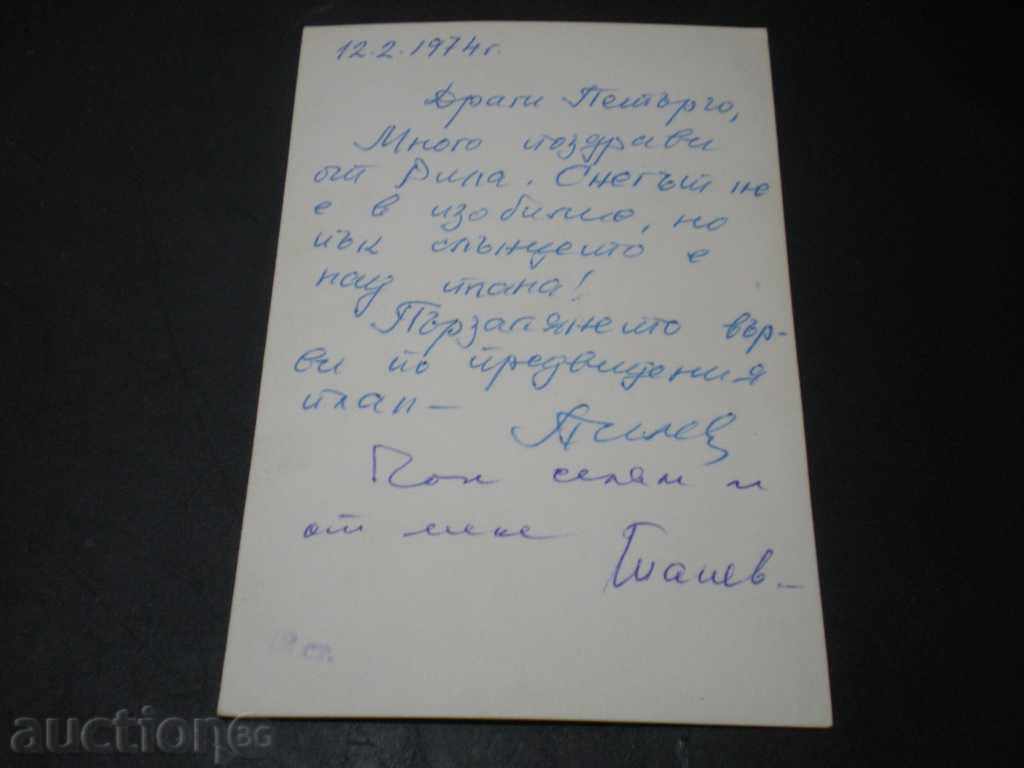 12.2.1974 г.
Драги Петърчо,
Много поздрави
от Рила. Снегът не
е в изобилие, но
пък слънцето е
над плана!
Пързалянето вър-
ви по предвидения
план –
Пон селям и
от мене
auction BG